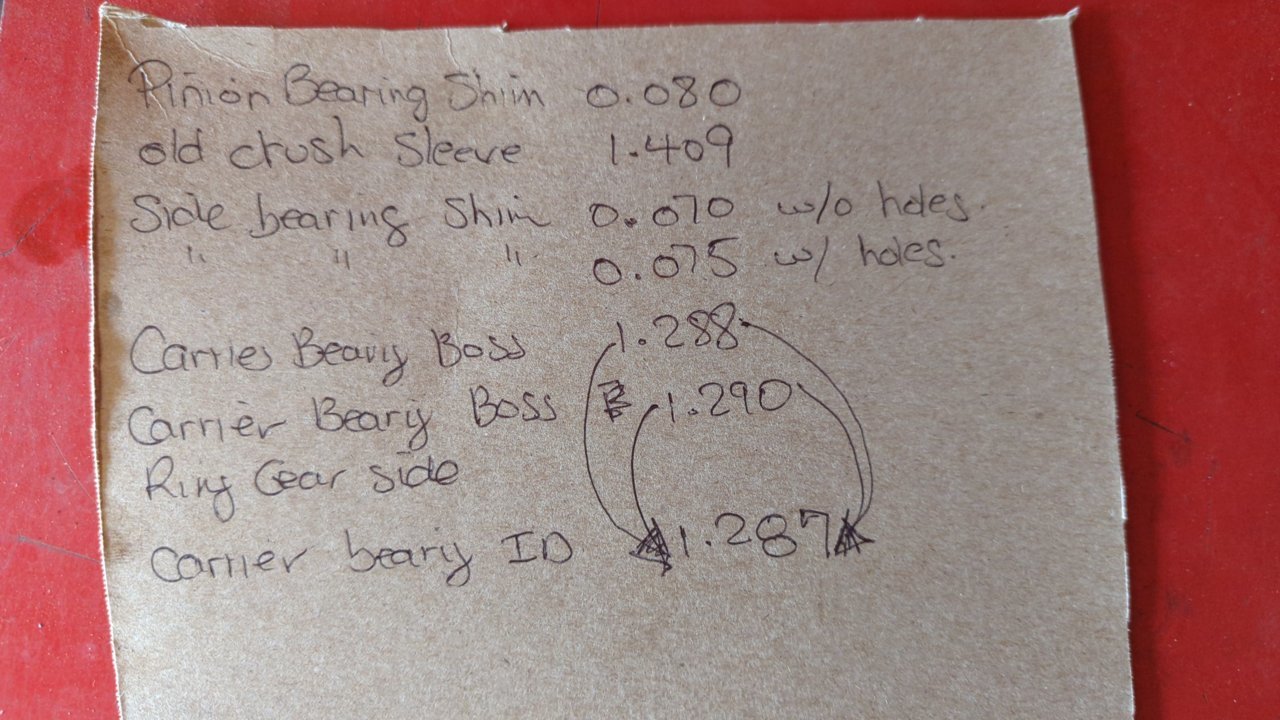 Pinion Bearing Shim 0.080
old crush Sleeve 1.409
Side bearing Shim 0.070 w/o holes.
" " " 0.075 w/ holes.
Carries Bearig Boss 1.288
Carrier Bearig Boss 1.290
Ring Gear side
Carrier bearig ID 1.287